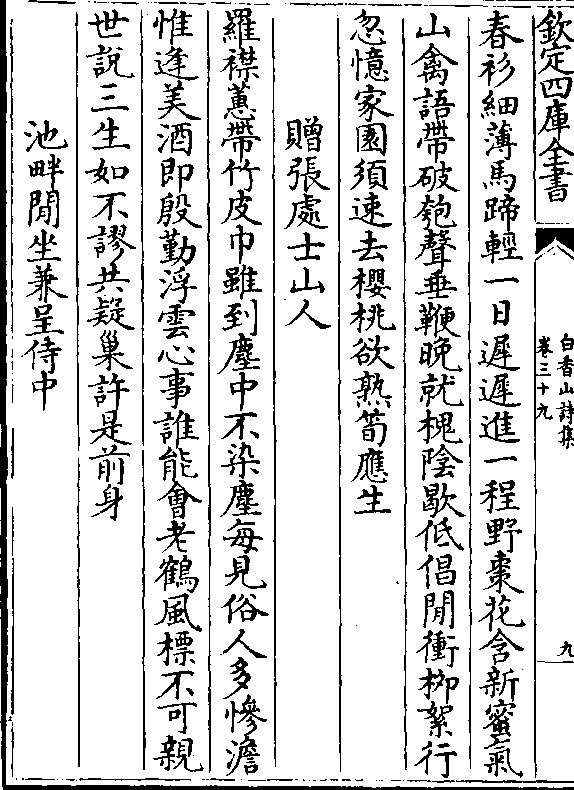 欽定四庫全書
白香山詩集
卷三十九
九
春衫細薄馬蹄輕一日遲遲進一程野棗花含新蜜氣
山禽語帶破匏聲垂鞭晚就槐陰歇低倡閒衝柳絮行
忽憶家園須速去櫻桃欲熟筍應生
贈張處士山人
羅襟蕙帶竹皮巾雖到塵中不染塵每見俗人多慘澹
惟逢美酒即殷勤浮雲心事誰能會老鶴風標不可親
世説三生如不謬共疑巢許是前身
池畔閒坐兼呈侍中